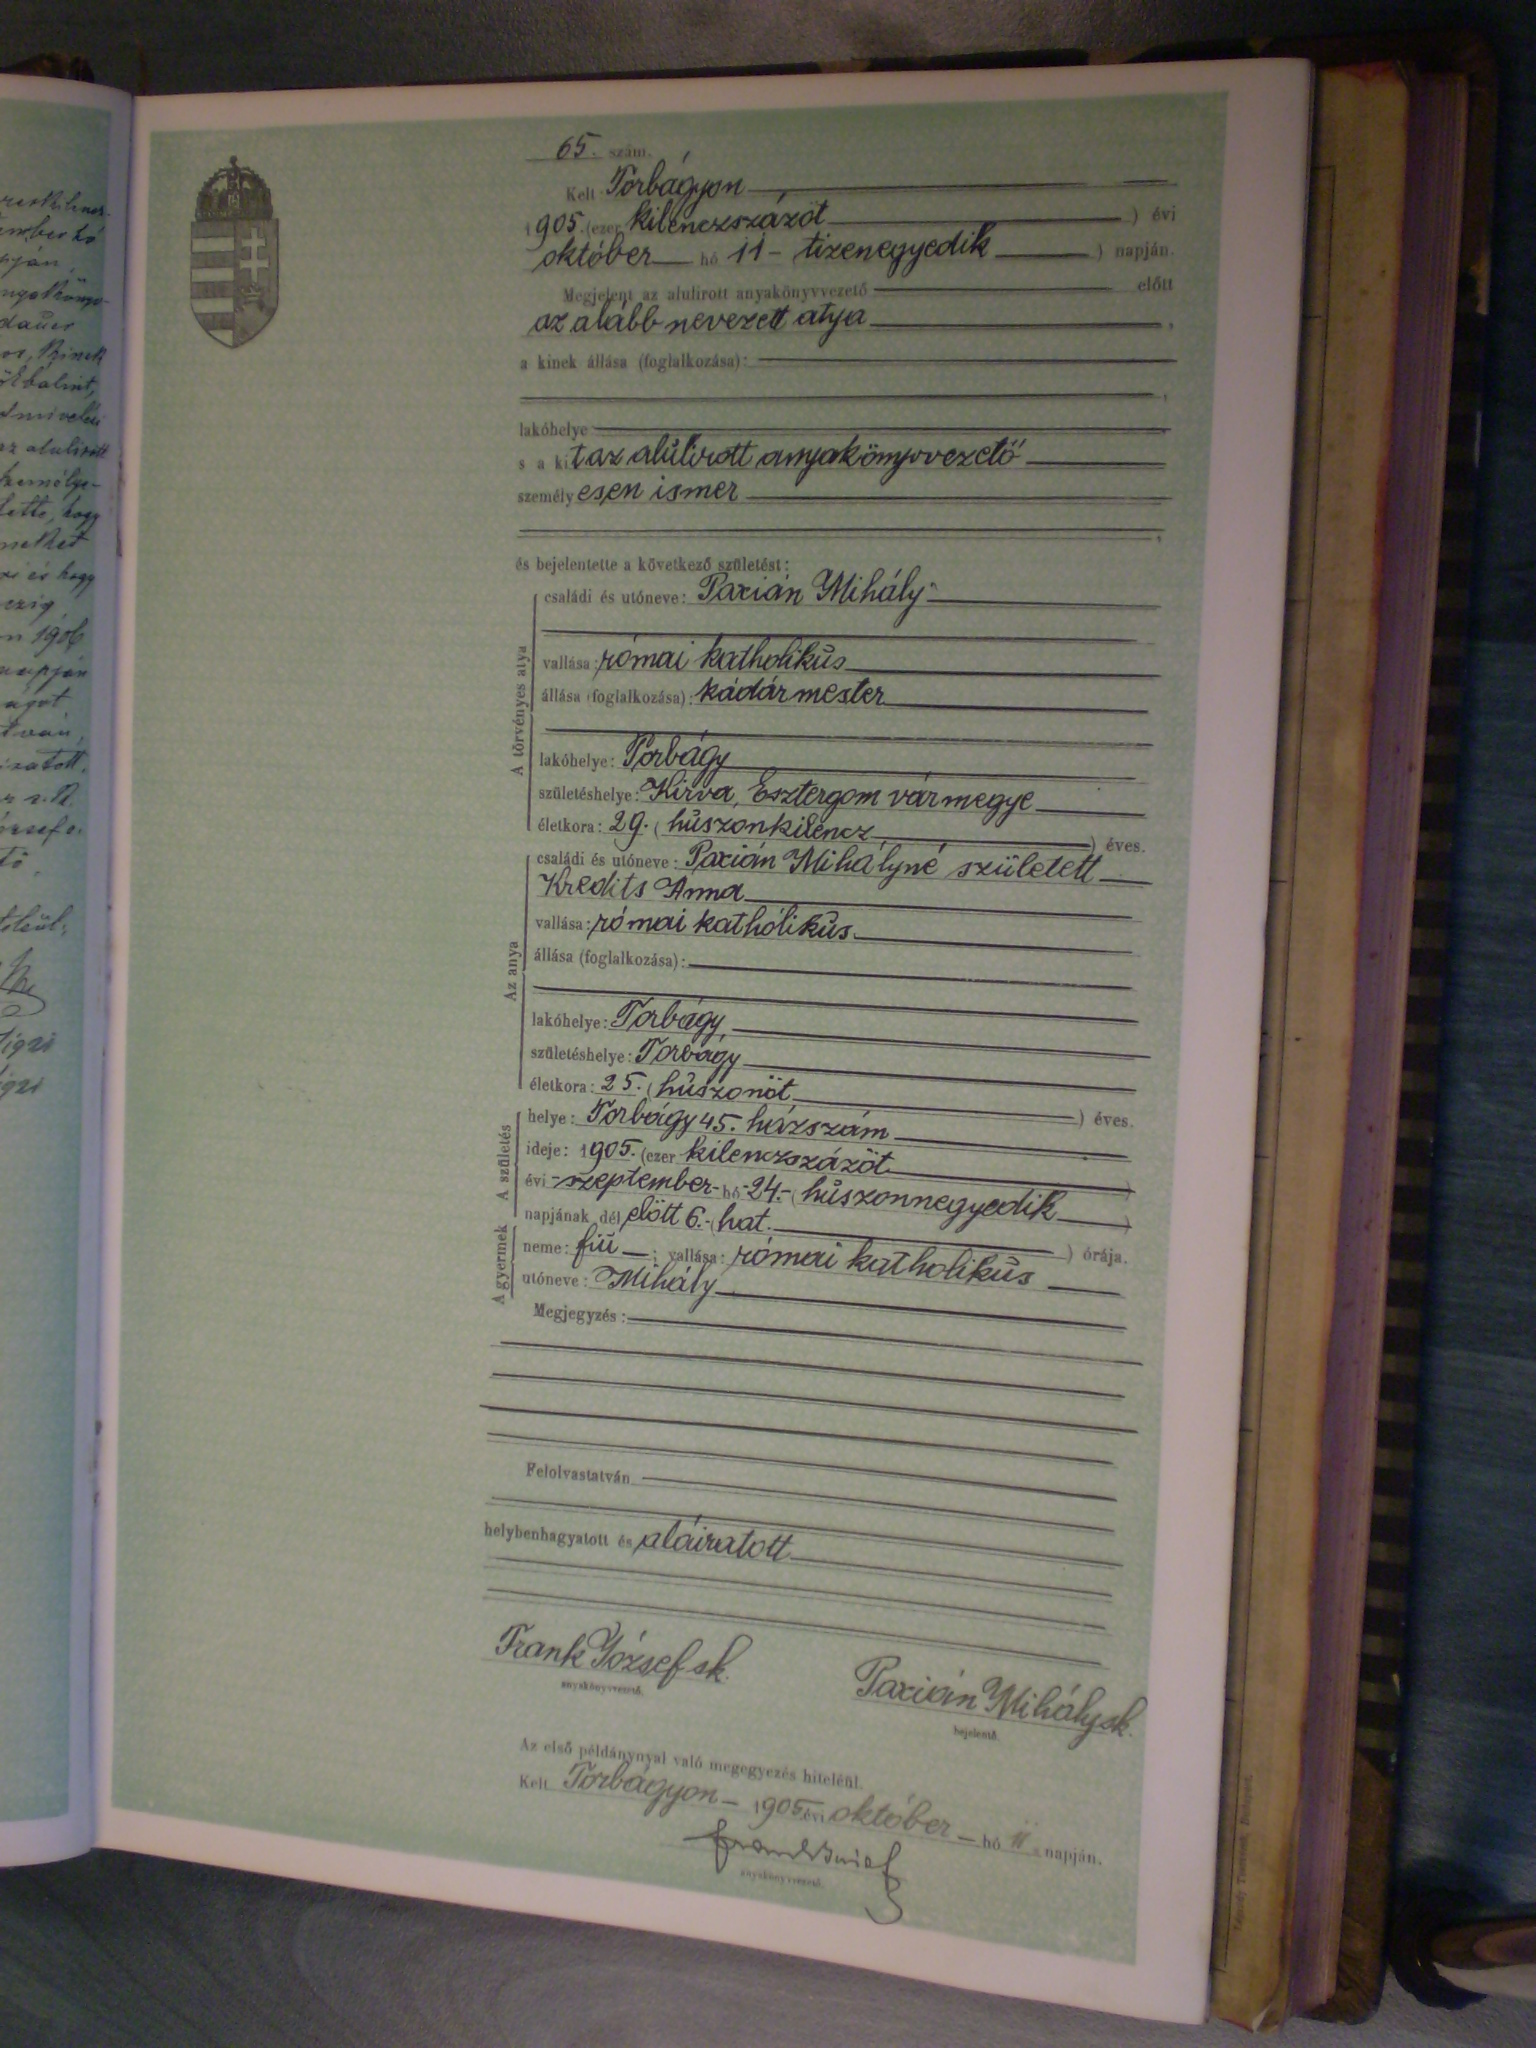 65. szám.
Kelt Torbágyon
1905. (ezer kilenczszázöt) évi
október hó 11 - tizenegyedik) napján.
Megjelent az alulirott anyakönyvvezető előtt
az alább nevezett atya,
a kinek állása (foglalkozása):
lakóhelye
s a kit az alulirott anyakönyvvezető
személyesen ismer
és bejelentette a következő születést:
A törvényes atya
családi és utóneve: Paxián Mihály
vallása: római katholikus
állása (foglalkozása): kádármester
lakóhelye: Torbágy
születéshelye: Kirva, Esztergom vármegye
életkora: 29. (huszonkilencz) éves.
Az anya
családi és utóneve: Paxián Mihályné született
Kredits Anna
vallása: római katholikus
állása (foglalkozása):
lakóhelye: Torbágy
születéshelye: Torbágy
életkora: 25. (huszonöt) éves.
A születés
helye: Torbágy 45. házszám
ideje: 1905. (ezer kilenczszázöt)
évi szeptember hó 24. (huszonnegyedik)
napjának dél előtt 6. (hat.) órája.
A gyermek
neme: fiú; vallása: római katholikus
utóneve: Mihály
Megjegyzés:
Felolvastatván
helybenhagyatott és aláiratott
Frank József sk.
anyakönyvvezető.
Paxián Mihály sk.
bejelentő.
Az első példánynyal való megegyezés hiteléül.
Kelt Torbágyon - 1905 évi október - hó 11 napján.
Frank József
anyakönyvvezető.